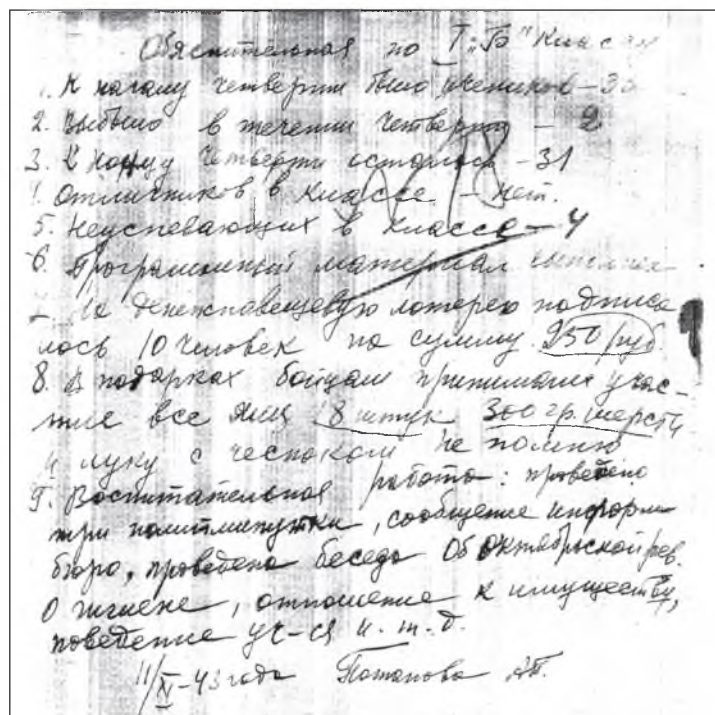 Обяснительная по I "Б" классу
1. К началу четверти было учеников – 33
2. Выбыло в течении четверти – 2
3. К концу четверти осталось – 31
4. Отличников в классе – нет.
5. Неуспевающих в классе – 4
6. Программный материал
На денежновещевую лотерею подписа
лось 10 человек на сумму 950 руб
8. В подарках бойцам принимали учас-
тие все яиц 18 штук 300 гр. шерсти
и луку с чесноком не помню
9. Воспитательная работа: проведено
три политминутки, сообщение информ
бюро, проведена беседа Об октябрьской рев.
О гигиене, отношение к имуществу,
поведение уч-ся и. т. д.
11/XI-43 года Потапова